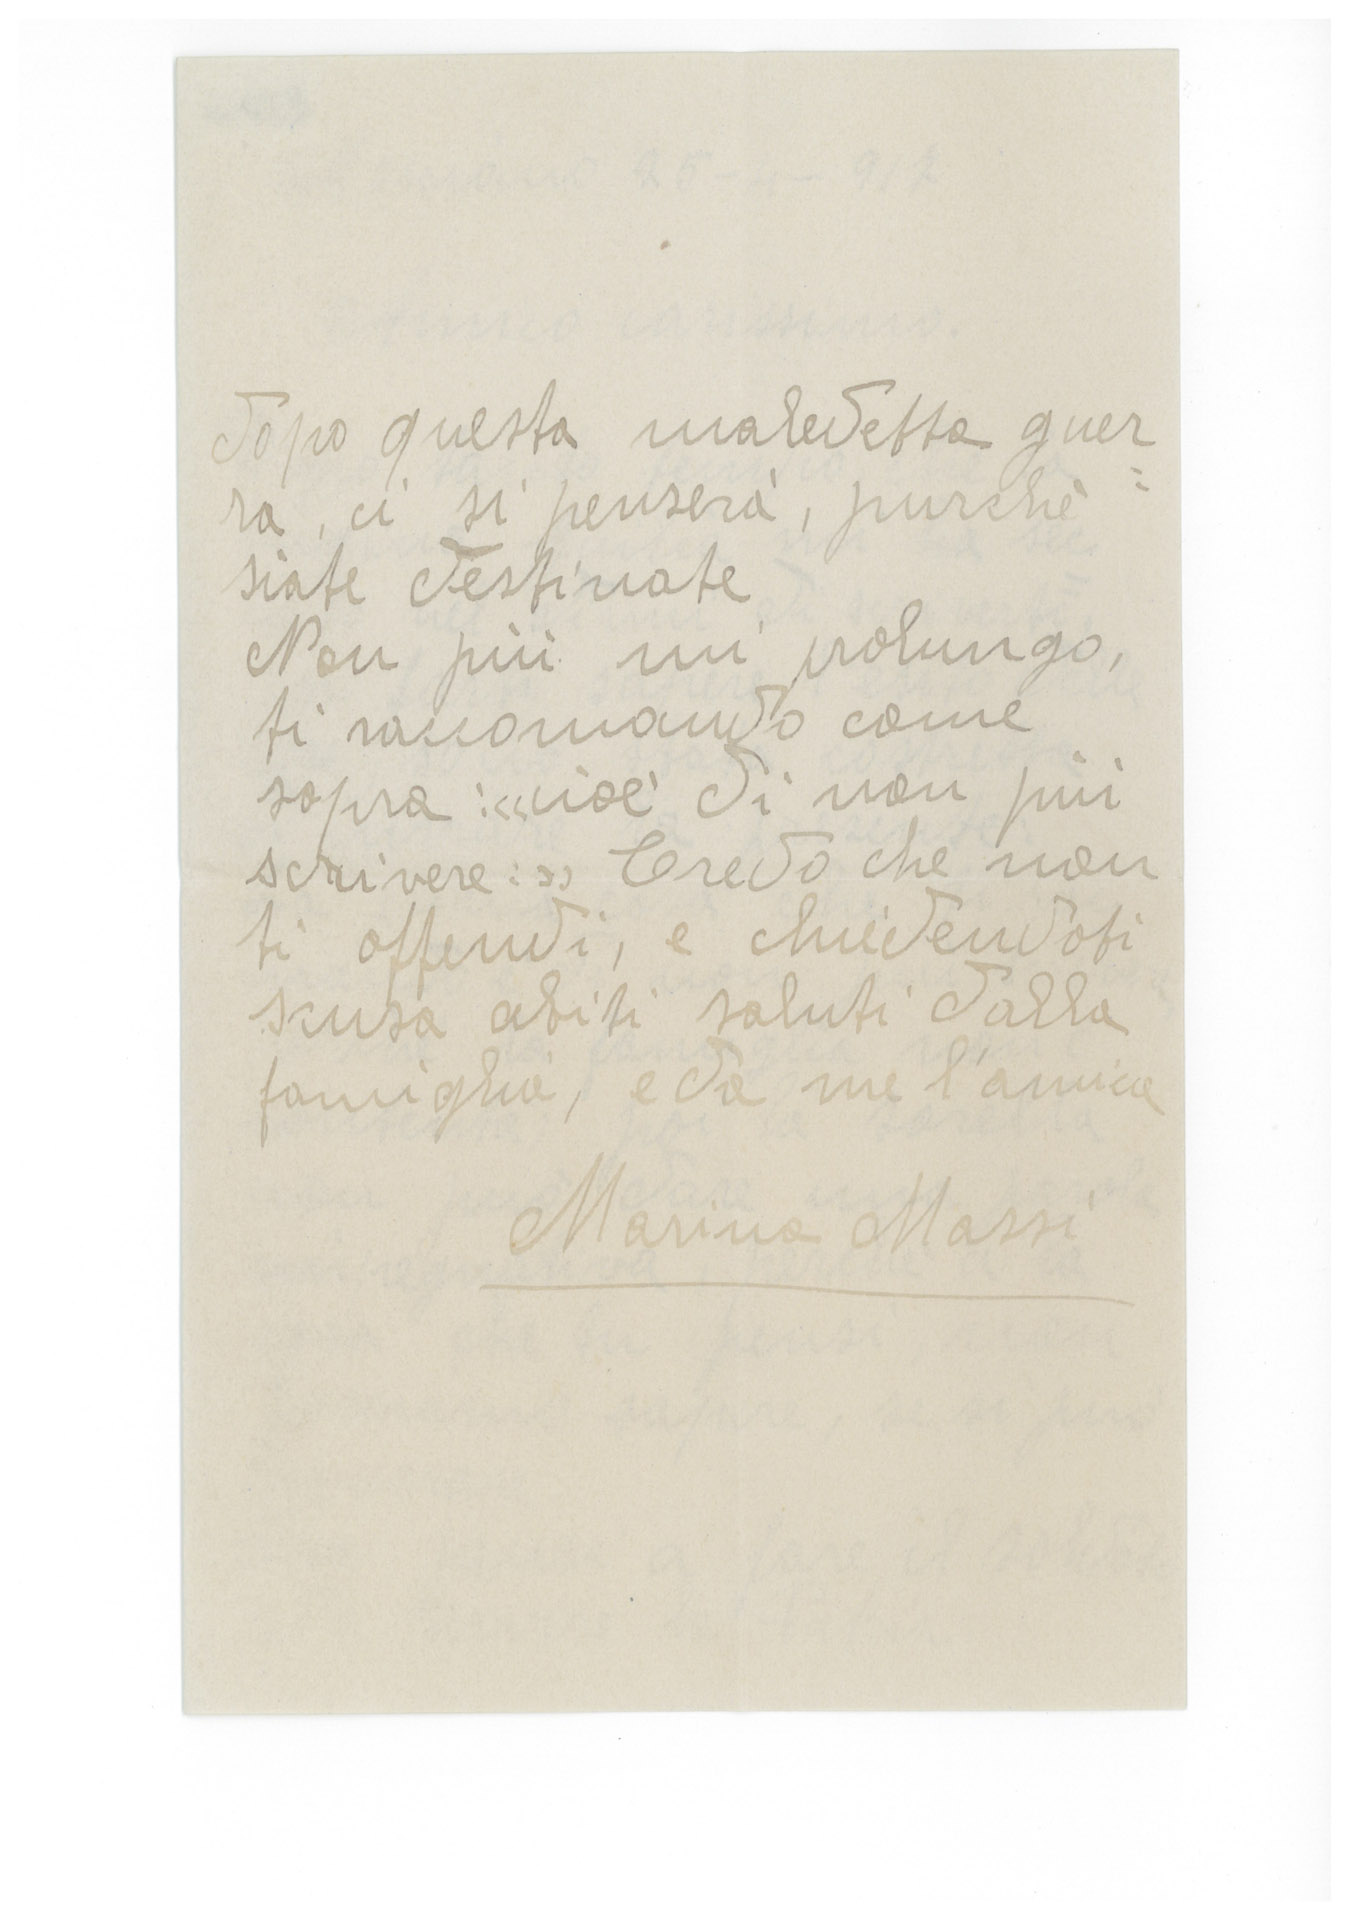 dopo questa maledetta guer
ra, ci si penserà, purchè
siate destinate
Non più mi prolungo,
ti raccomando come
sopra :«cioè di non più
scrivere:» Credo che non
ti offendi, e chiedendoti
scusa abiti saluti dalla
famiglia, e da me l'amica
Marina Massi